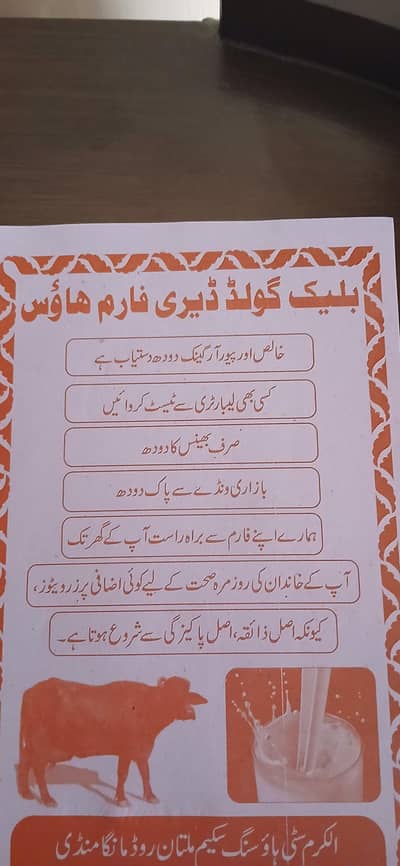 بلیک گولڈ ڈیری فارم ھاؤس
خالص اور پیور آرگینک دودھ دستیاب ہے
کسی بھی لیبارٹری سے ٹیسٹ کروائیں
صرف بھینس کا دودھ
بازاری ونڈے سے پاک دودھ
ہمارے اپنے فارم سے براہ راست آپ کے گھر تک
آپ کے خاندان کی روزمرہ صحت کے لیے کوئی اضافی پرزرویٹوز،
کیونکہ اصل ذائقہ، اصل پاکیزگی سے شروع ہوتا ہے۔
الکرم سٹی ہاؤسنگ سکیم ملتان روڈ مانگا منڈی